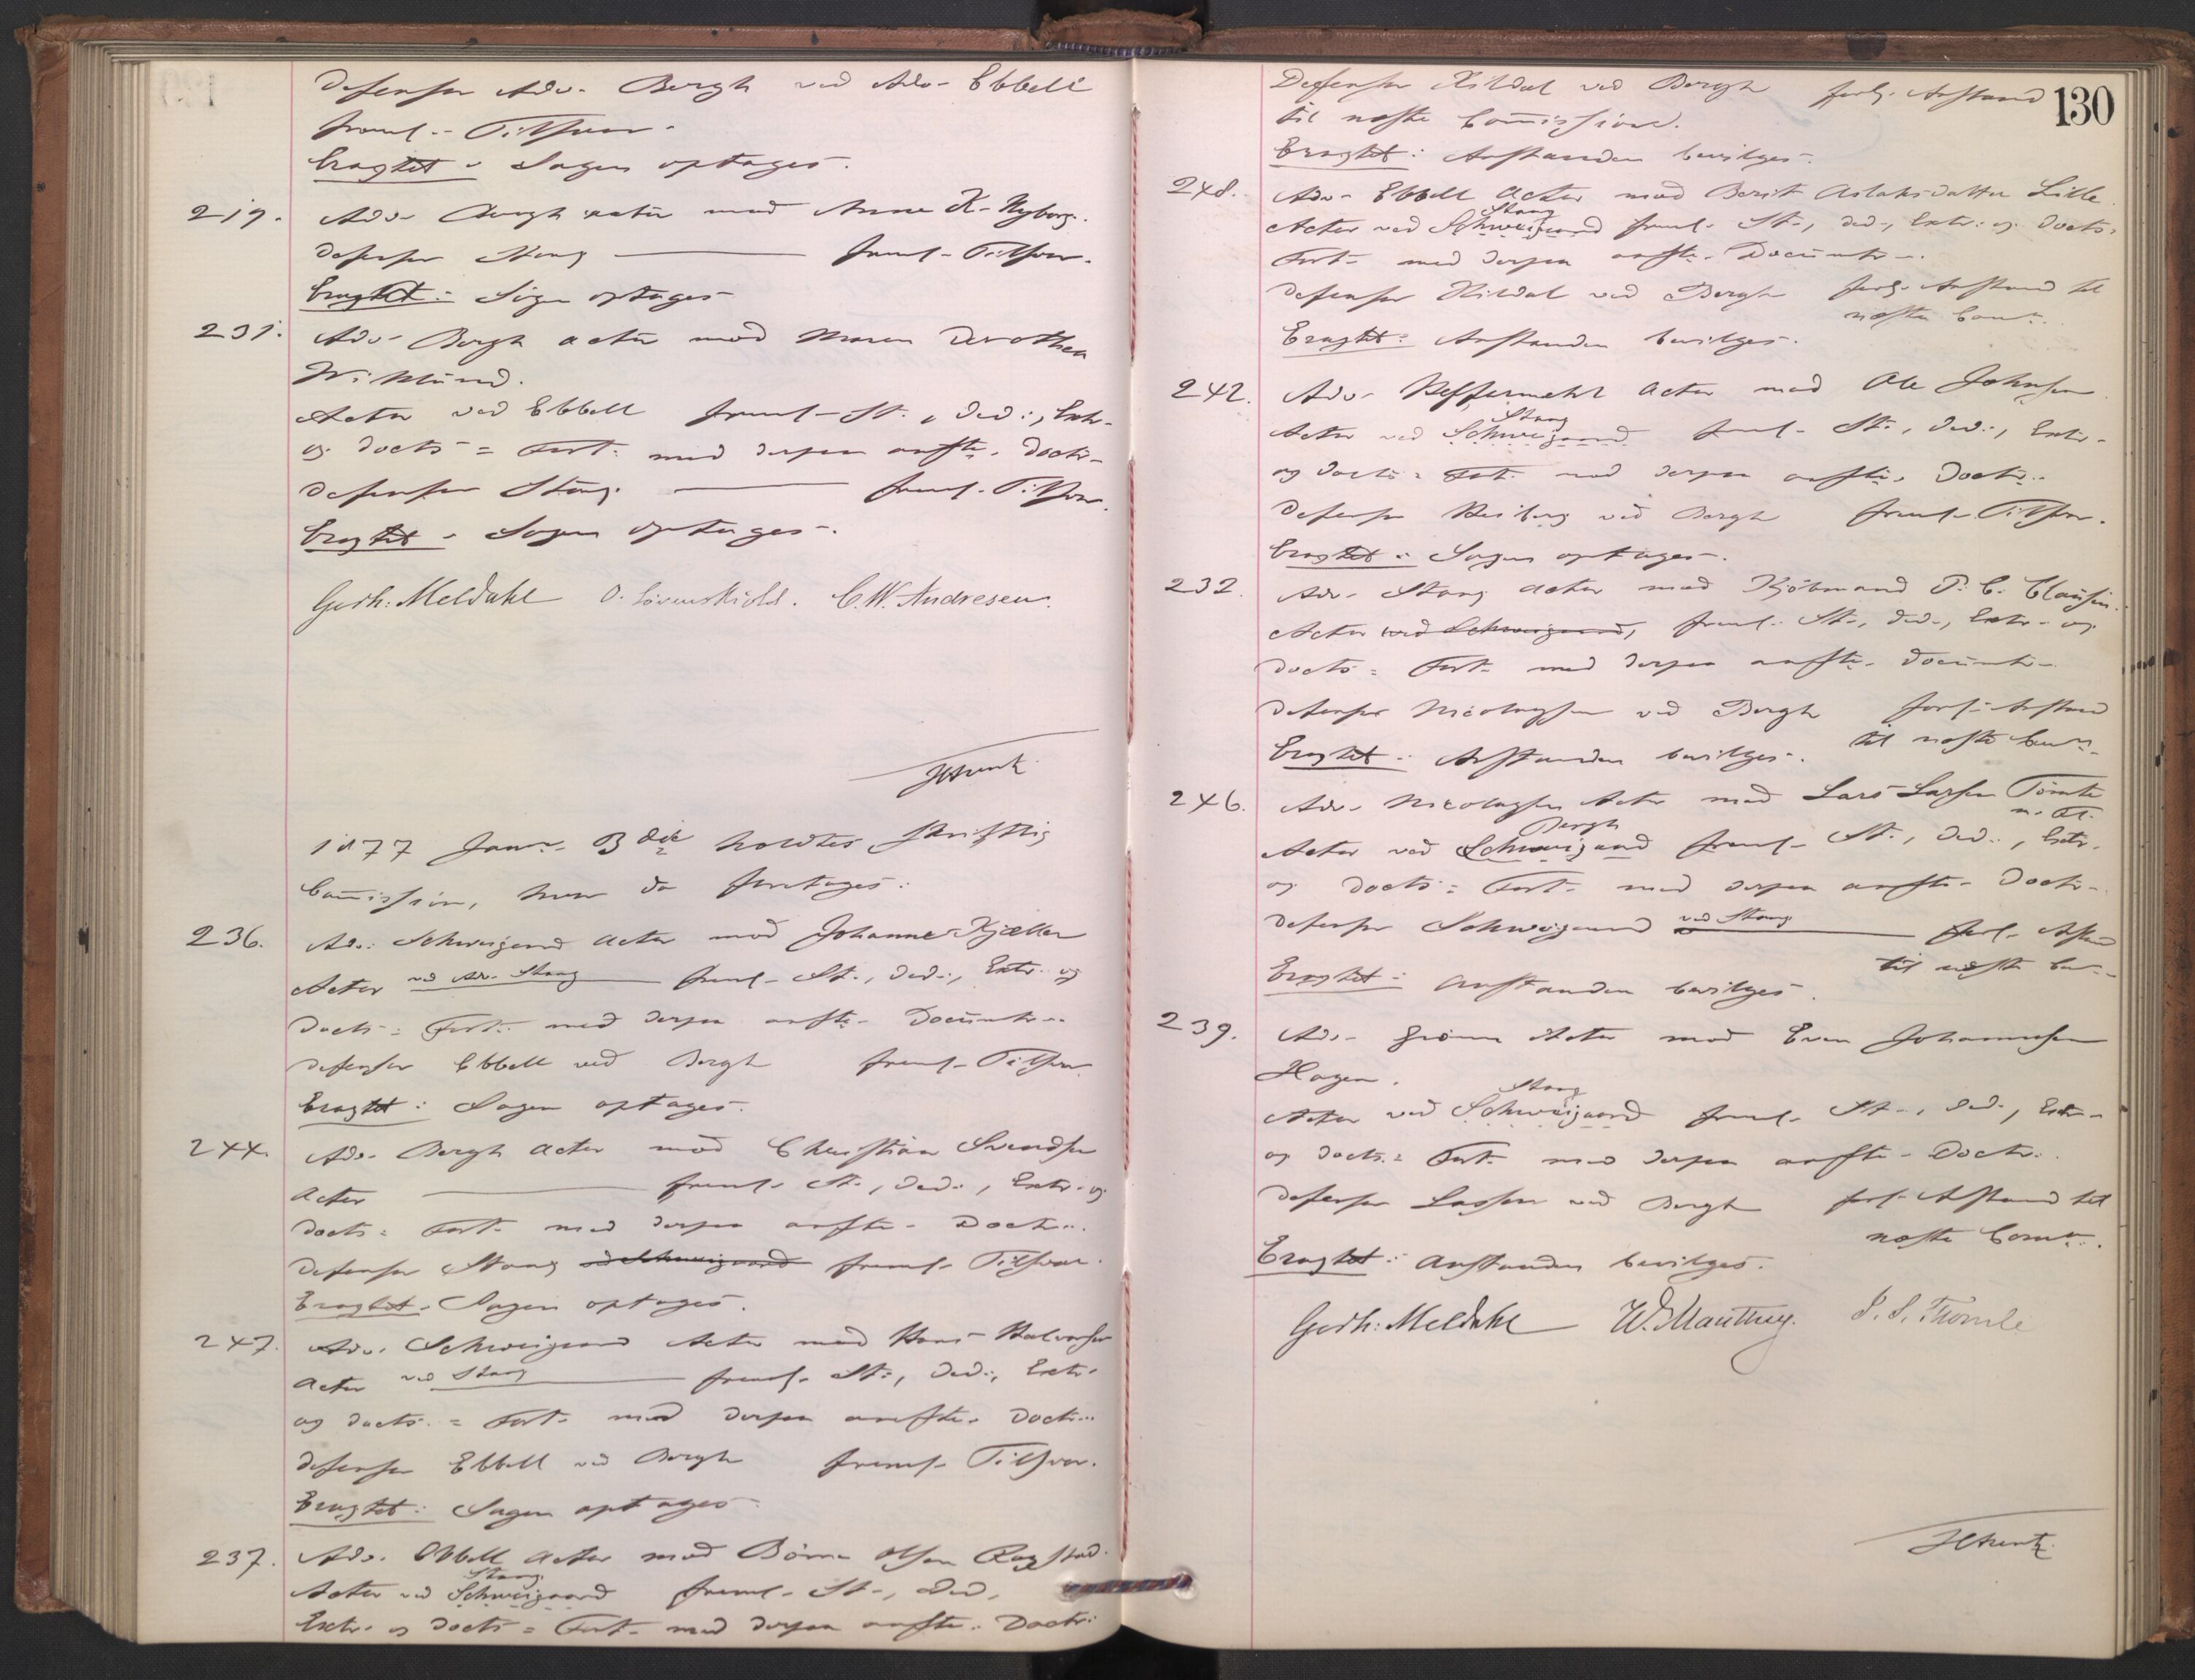 Defensor Adv. Bergh ved Adv. Ebbell
freml. Tilsvar.
Eragtet: Sagen optages.
219. Adv. Bergh actor mod Anne K. Nyborg.
Defensor Stang freml. Tilsvar.
Eragtet: Sagen optages
231. Adv. Bergh actor mod Maren Dorothea
Wiklund.
Actor ved Ebbell freml. St., Ded., Extr.
og Docts = Fort. med derpaa anfte. Doctr.
Defensor Stang freml. Tilsvar.
Eragtet: Sagen optages.
Gerh: Meldahl O. Løvenskiold. C. W. Andresen.
1877 Janr. 3die holdtes skriftlig
Commission, hvor da foretages:
236. Adv. Schweigaard Actor mod Johanne Kjæller
Actor ved Adv. Stang freml. St., Ded., Extr. og
Docts = Fort. med derpaa anfte. Documtr.
Defensor Ebbell ved Bergh freml. Tilsvar.
Eragtet: Sagen optages.
244. Adv. Bergh Actor mod Christian Svendsen
Actor freml. St., Ded., Extr. og
Docts = Fort. med derpaa anfte. Doctr.
Defensor Stang ved Schweigaard freml. Tilsvar.
Eragtet: Sagen optages.
247. Adv. Schweigaard Actor mod Hans Halvorsen
Actor ved Stang freml. St., Ded., Extr.
og Docts = Fort. med derpaa anfte. Doctr.
Defensor Ebbell ved Bergh freml. Tilsvar.
Eragtet: Sagen optages
237. Adv. Ebbell Actor mod Olsen
Stang
Actor ved Schweigaard freml. St., Ded.,
Extr. og Docts = Fort. med derpaa anfte. Doctr.
130
Defensor Kildal ved Bergh forl. Anstand
til næste Commission.
Eragtet: Anstanden bevilges.
248. Adv. Ebbell Actor mod Berit Aslaksdatter Lille
Stang
Actor ved Schweigaard freml. St., Ded., Extr. og Docts.
Fort. med derpaa anfte. Documtr.
Defensor Kildal ved Bergh forl. Anstand til
næste Comn.
Eragtet: Anstanden bevilges.
242. Adv. Heffermehl Actor mod Ole Johnsen
Stang
Actor ved Schweigaard freml. St., Ded., Extr.
og Docts = Fort. med derpaa anfte. Doctr.
Defensor Heiberg ved Bergh freml. Tilsvar.
Eragtet: Sagen optages.
232. Adv. Stang Actor mod Kjöbmand P. C. Clausen.
Actor ved Schweigaard, freml. St., Ded., Extr. og
Docts = Fort. med derpaa anfte. Documtr.
Defensor Nicolaysen ved Bergh forl. Anstand
til næste Comn.
Eragtet: Anstanden bevilges.
246. Adv. Nicolaysen Actor mod Lars Larsen Tømte
m. Fl.
Bergh
Actor ved Schweigaard freml. St., Ded., Extr.
og Docts = Fort. med derpaa anfte. Doctr.
Defensor Schweigaard ved Stang forl. Anstand
til næste Comn.
Eragtet: Anstanden bevilges.
239. Adv. Grönn Actor mod Even Johannesen
Hagen.
Stang
Actor ved Schweigaard freml. St., Ded., Extr.
og Docts = Fort. med derpaa anfte. Doctr.
Defensor Lassen ved Bergh forl. Anstand til
næste Comn.
Eragtet: Anstanden bevilges.
Gerh: Meldahl W. Manthey. I. S. Thomle